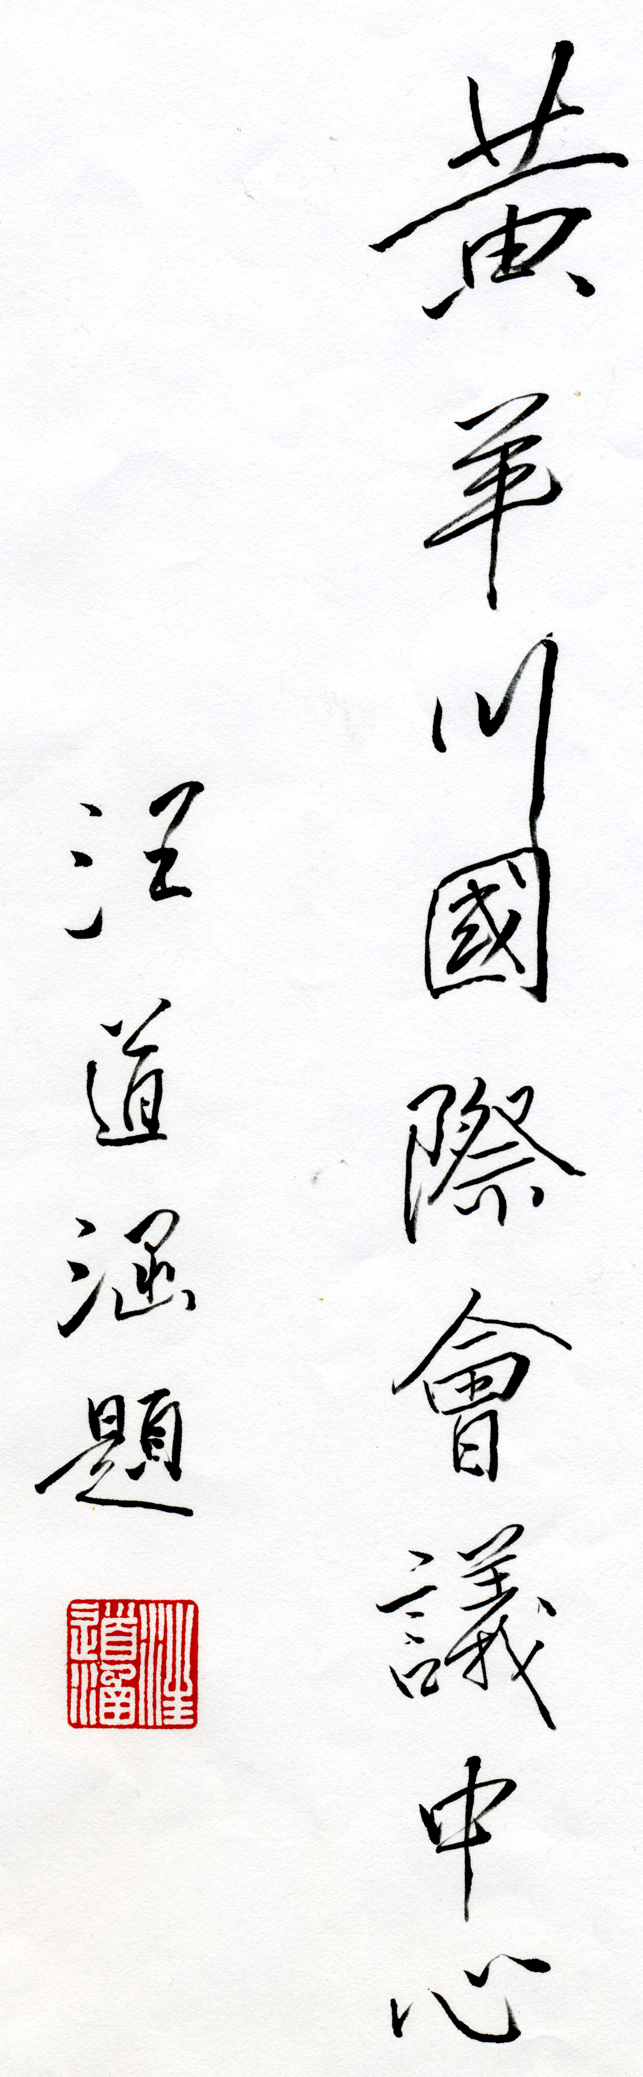 黃羊川國際會議中心
汪道涵題
汪道涵